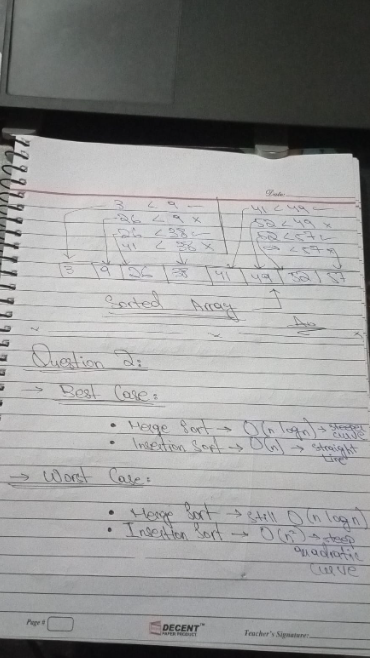 Date:
3 < 9 –
41 < 49 –
26 < 9 x
52 < 49 x
26 < 38 –
52 < 57 –
41 < 38 x
3 9 26 38 41 49 52 57
Sorted Array
Question 2:
→ Best Case:
• Merge Sort → O(n logn) → steeper curve
• Insertion Sort → O(n) → straight line
→ Worst Case:
• Merge Sort → still O(n logn)
• Insertion Sort → O(n²) → steep
quadratic
curve
Page #
DECENT™
PAPER PRODUCT
Teacher's Signature: